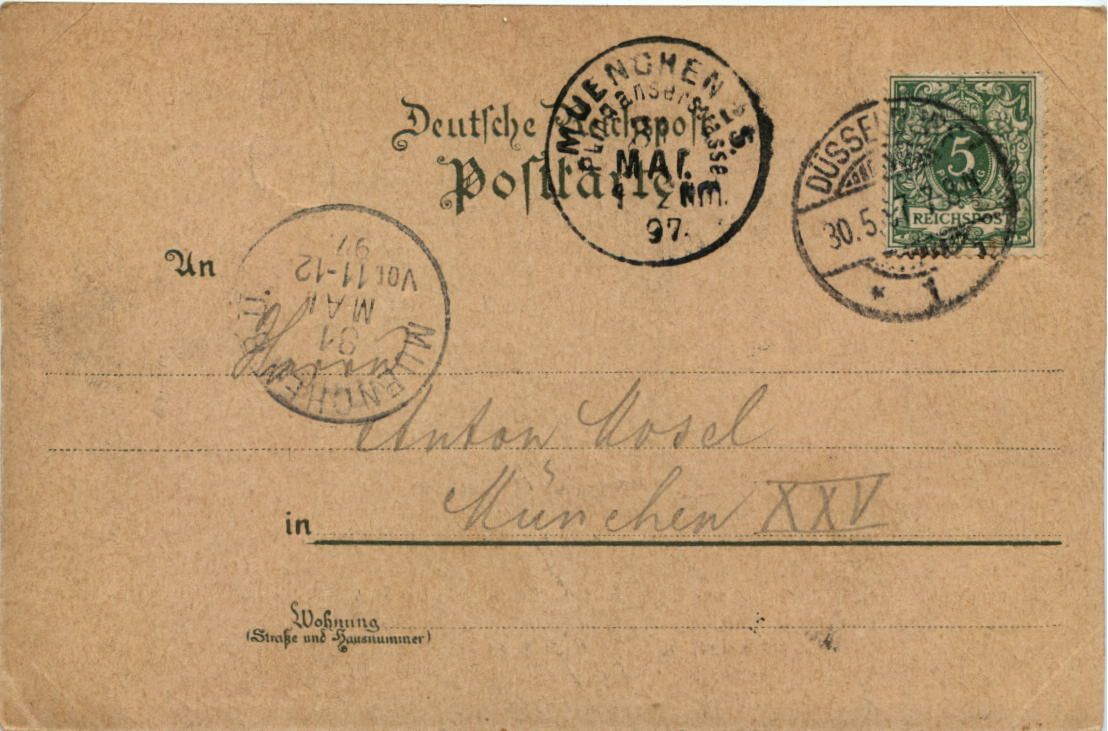 Deutsche Reichspost
Postkarte
MUENCHEN 25.
Plinganserstrasse
31
MAI.
1-2 NM.
97.
DÜSSELDORF
30.5.97
8-9 N
* 1
5
PFENNIG
REICHSPOST
An
MUENCHEN
31
MAI
Vor 11-12
97.
Herrn
Anton Mosel
in München XXV
Wohnung
(Straße und Hausnummer)